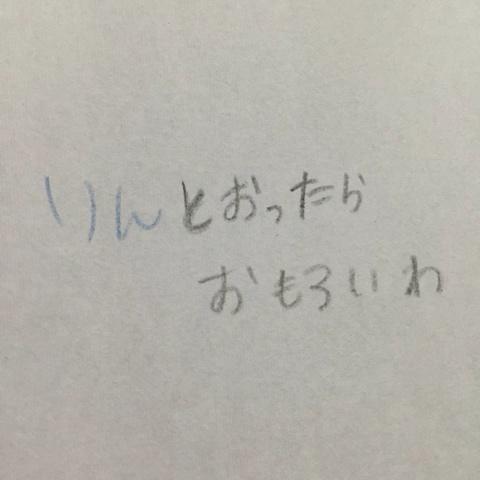 りんとおったら
おもろいわ